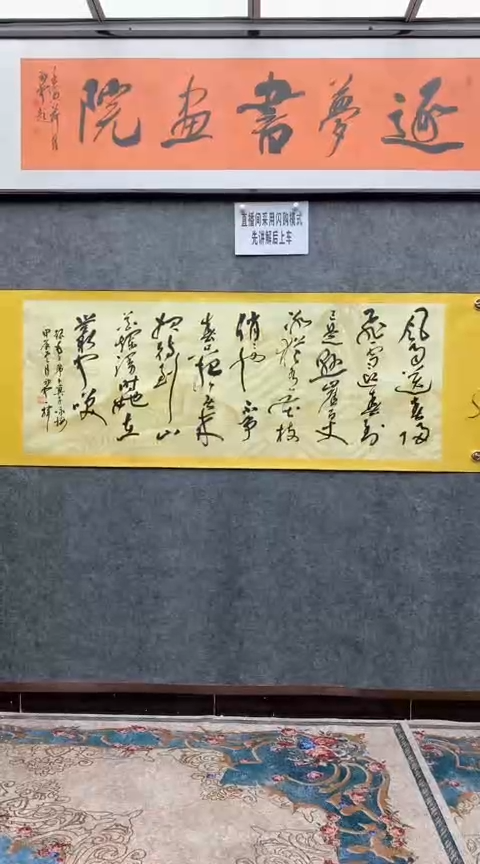 逐夢書畫院
直播间采用闪购模式
先讲解后上车
風雨送春歸
飛雪迎春到
已是懸崖百丈
冰猶有花枝
俏俏也不爭
春只把春來
報待到山
花爛漫時她在
叢中笑